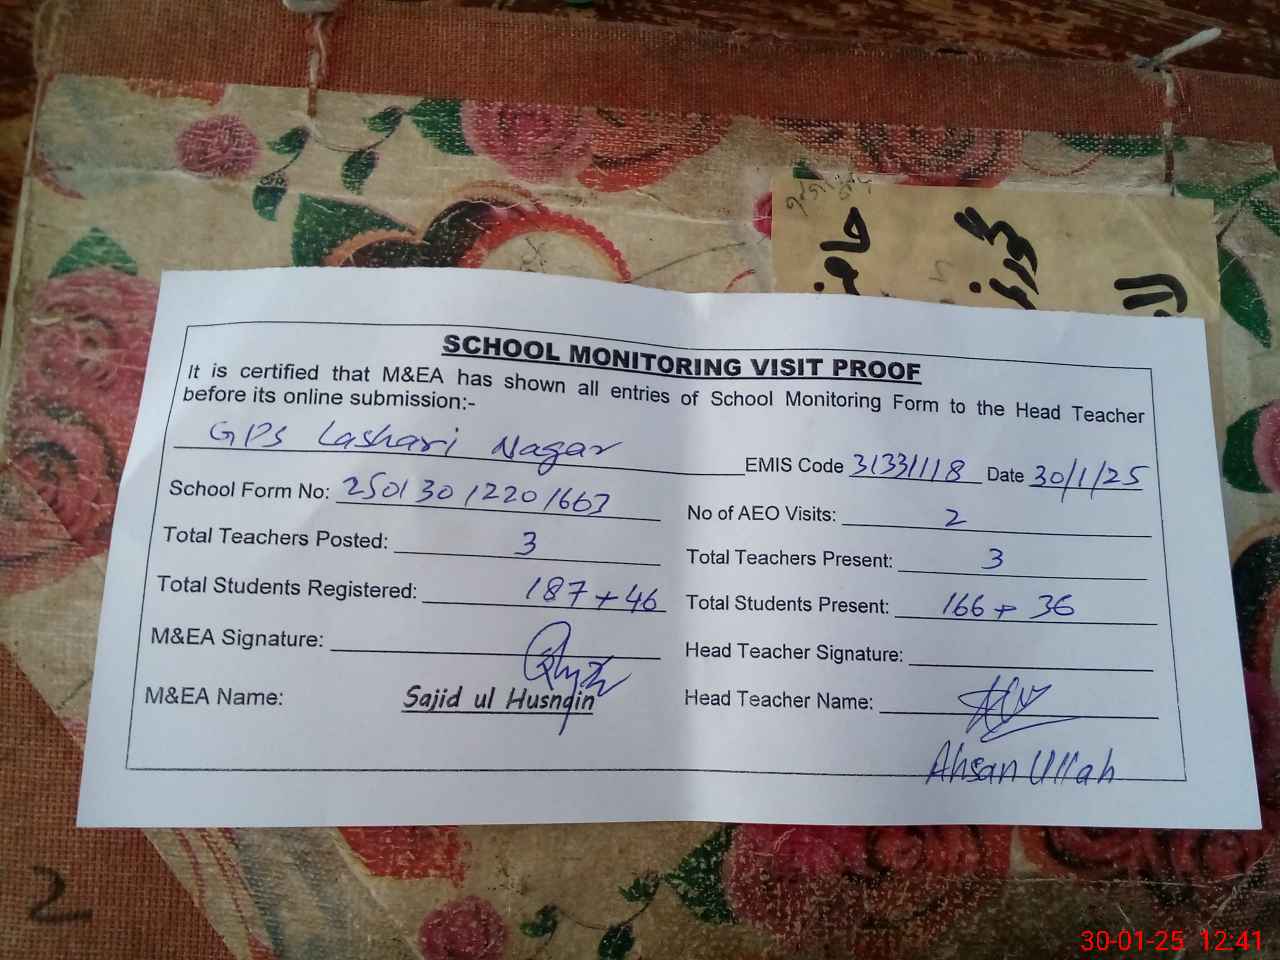 حاضر
گورنمنٹ
SCHOOL MONITORING VISIT PROOF
It is certified that M&EA has shown all entries of School Monitoring Form to the Head Teacher
before its online submission:-
GPS Lashari Nagar EMIS Code 31331118 Date 30/1/25
School Form No: 25013012201663 No of AEO Visits: 2
Total Teachers Posted: 3 Total Teachers Present: 3
Total Students Registered: 187+46 Total Students Present: 166+36
M&EA Signature: Head Teacher Signature:
M&EA Name: Sajid ul Husnain Head Teacher Name:
Ahsan Ullah
2
30-01-25 12:41